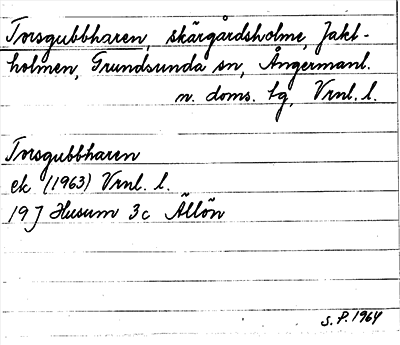 Torsgubbharen, skärgårdsholme, Jakt-
holmen, Grundsunda sn, Ångermanl.
n. doms. tg, Vrnl. l.
Torsgubbharen
ek (1963) Vrnl. l.
19 J Husum 3c Ällön
S.P. 1964